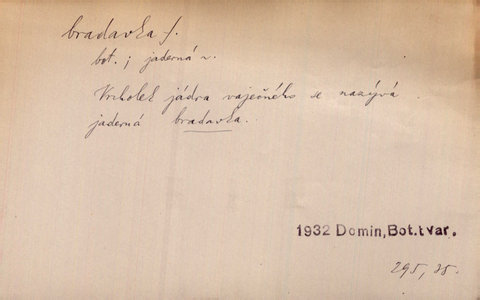 bradavka f.
bot.; jaderná ~.
Vrcholek jádra vaječného se nazývá
jaderná bradavka.
1932 Domin, Bot.tvar.
295, 35.